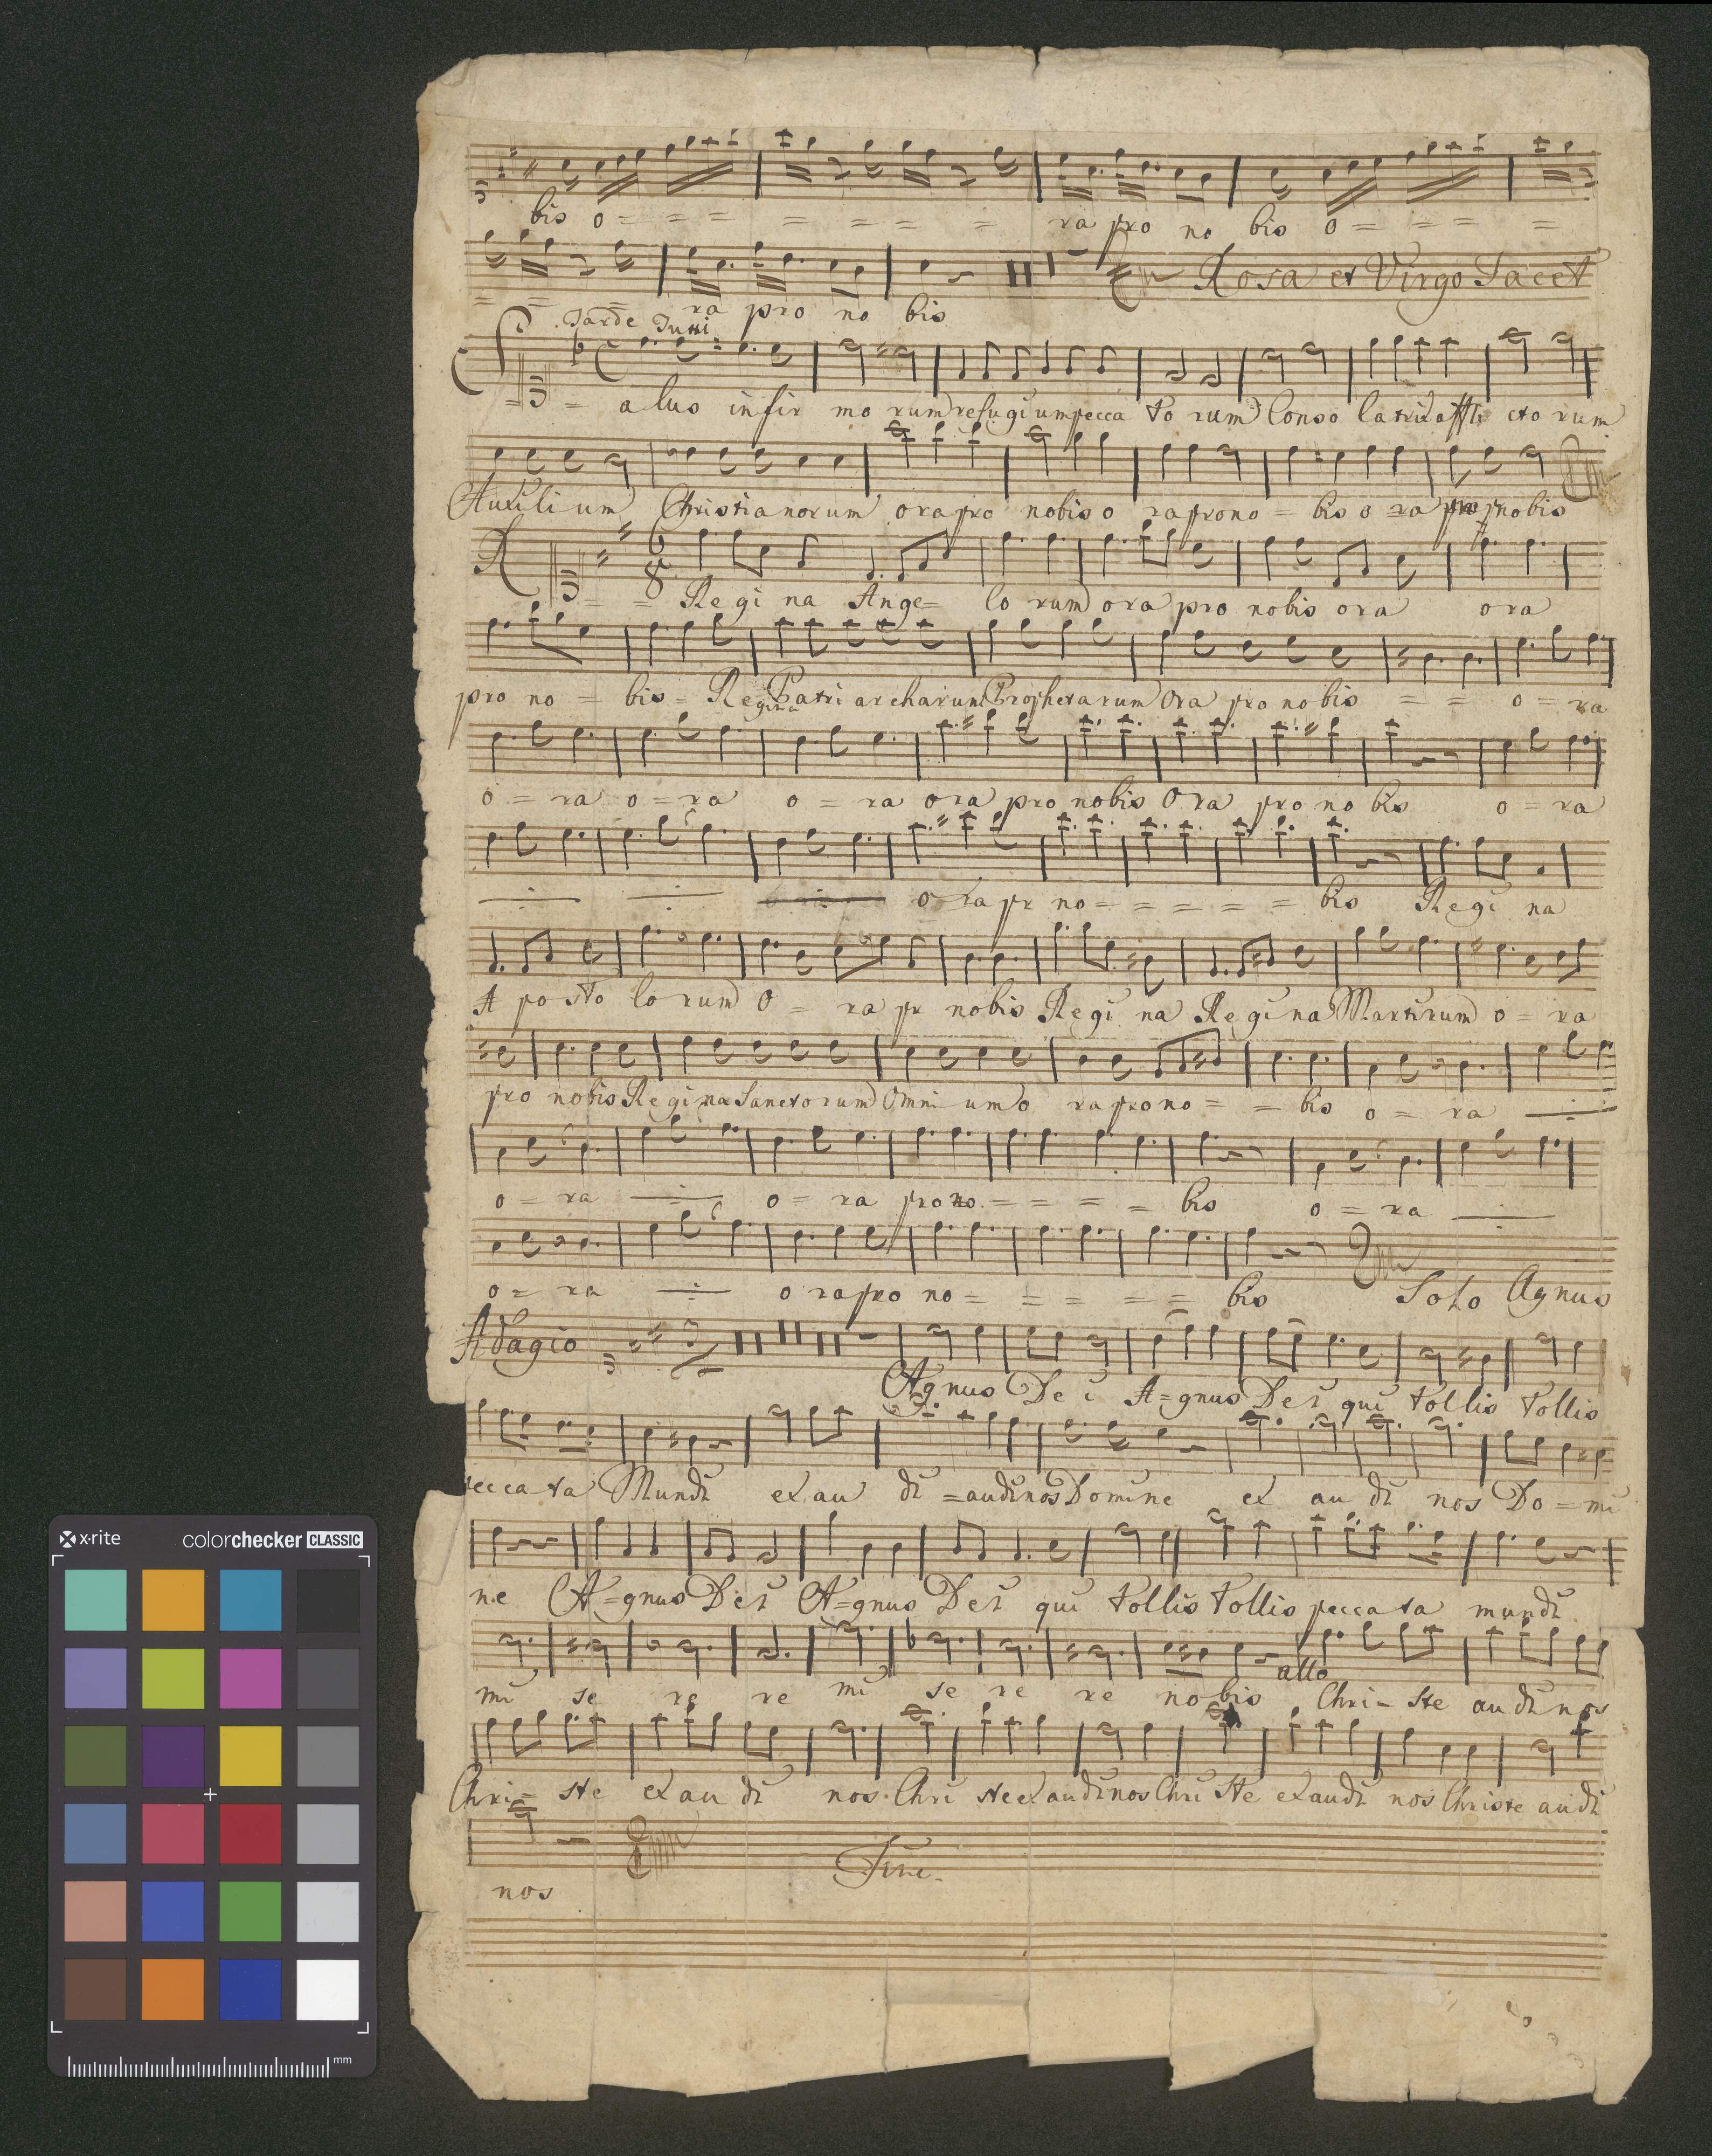 bis o = = = = = = = ra pro no bis o = = = =
= = = ra pro no bis Rosa et Virgo Tacet
Tarde Tutti
Salus infir mo rum refugium pecca to rum Conso latrix affli cto rum
Auxilium Christianorum ora pro nobis o ra pro no = bis o = ra pro nobis
6
8
Regi na Ange= lo rum ora pro nobis ora ora
pro no = bis = Regina Patri archarum Prophetarum Ora pro no bis = = o = ra
o = ra o = ra o = ra ora pro nobis Ora pro no bis o = ra
o ra pr no = = = = = = bis Regi na
A po sto lo rum O = ra pr nobis Regi na Regi na Martirum o = ra
pro nobis Regina Sanctorum Omni um o ra pro no = = bis o = ra
o = ra o = ra pro no = = = = bis o = ra
o = ra o ra pro no = = = = = bis Solo Agnus
Adagio
Agnus De i A=gnus Dei qui tollis tollis
peccata Mundi exau di =audi nos Domine ex au di nos Do = mi
ne A=gnus Dei A=gnus Dei qui tollis tollis peccata mundi
allo
mi se re re mi se re re nobis Chri- ste audi nos
Chri= ste exau di nos Chri ste exaudi nos Chri ste exaudi nos Christe audi
nos Fine.
x-rite colorchecker CLASSIC
mm